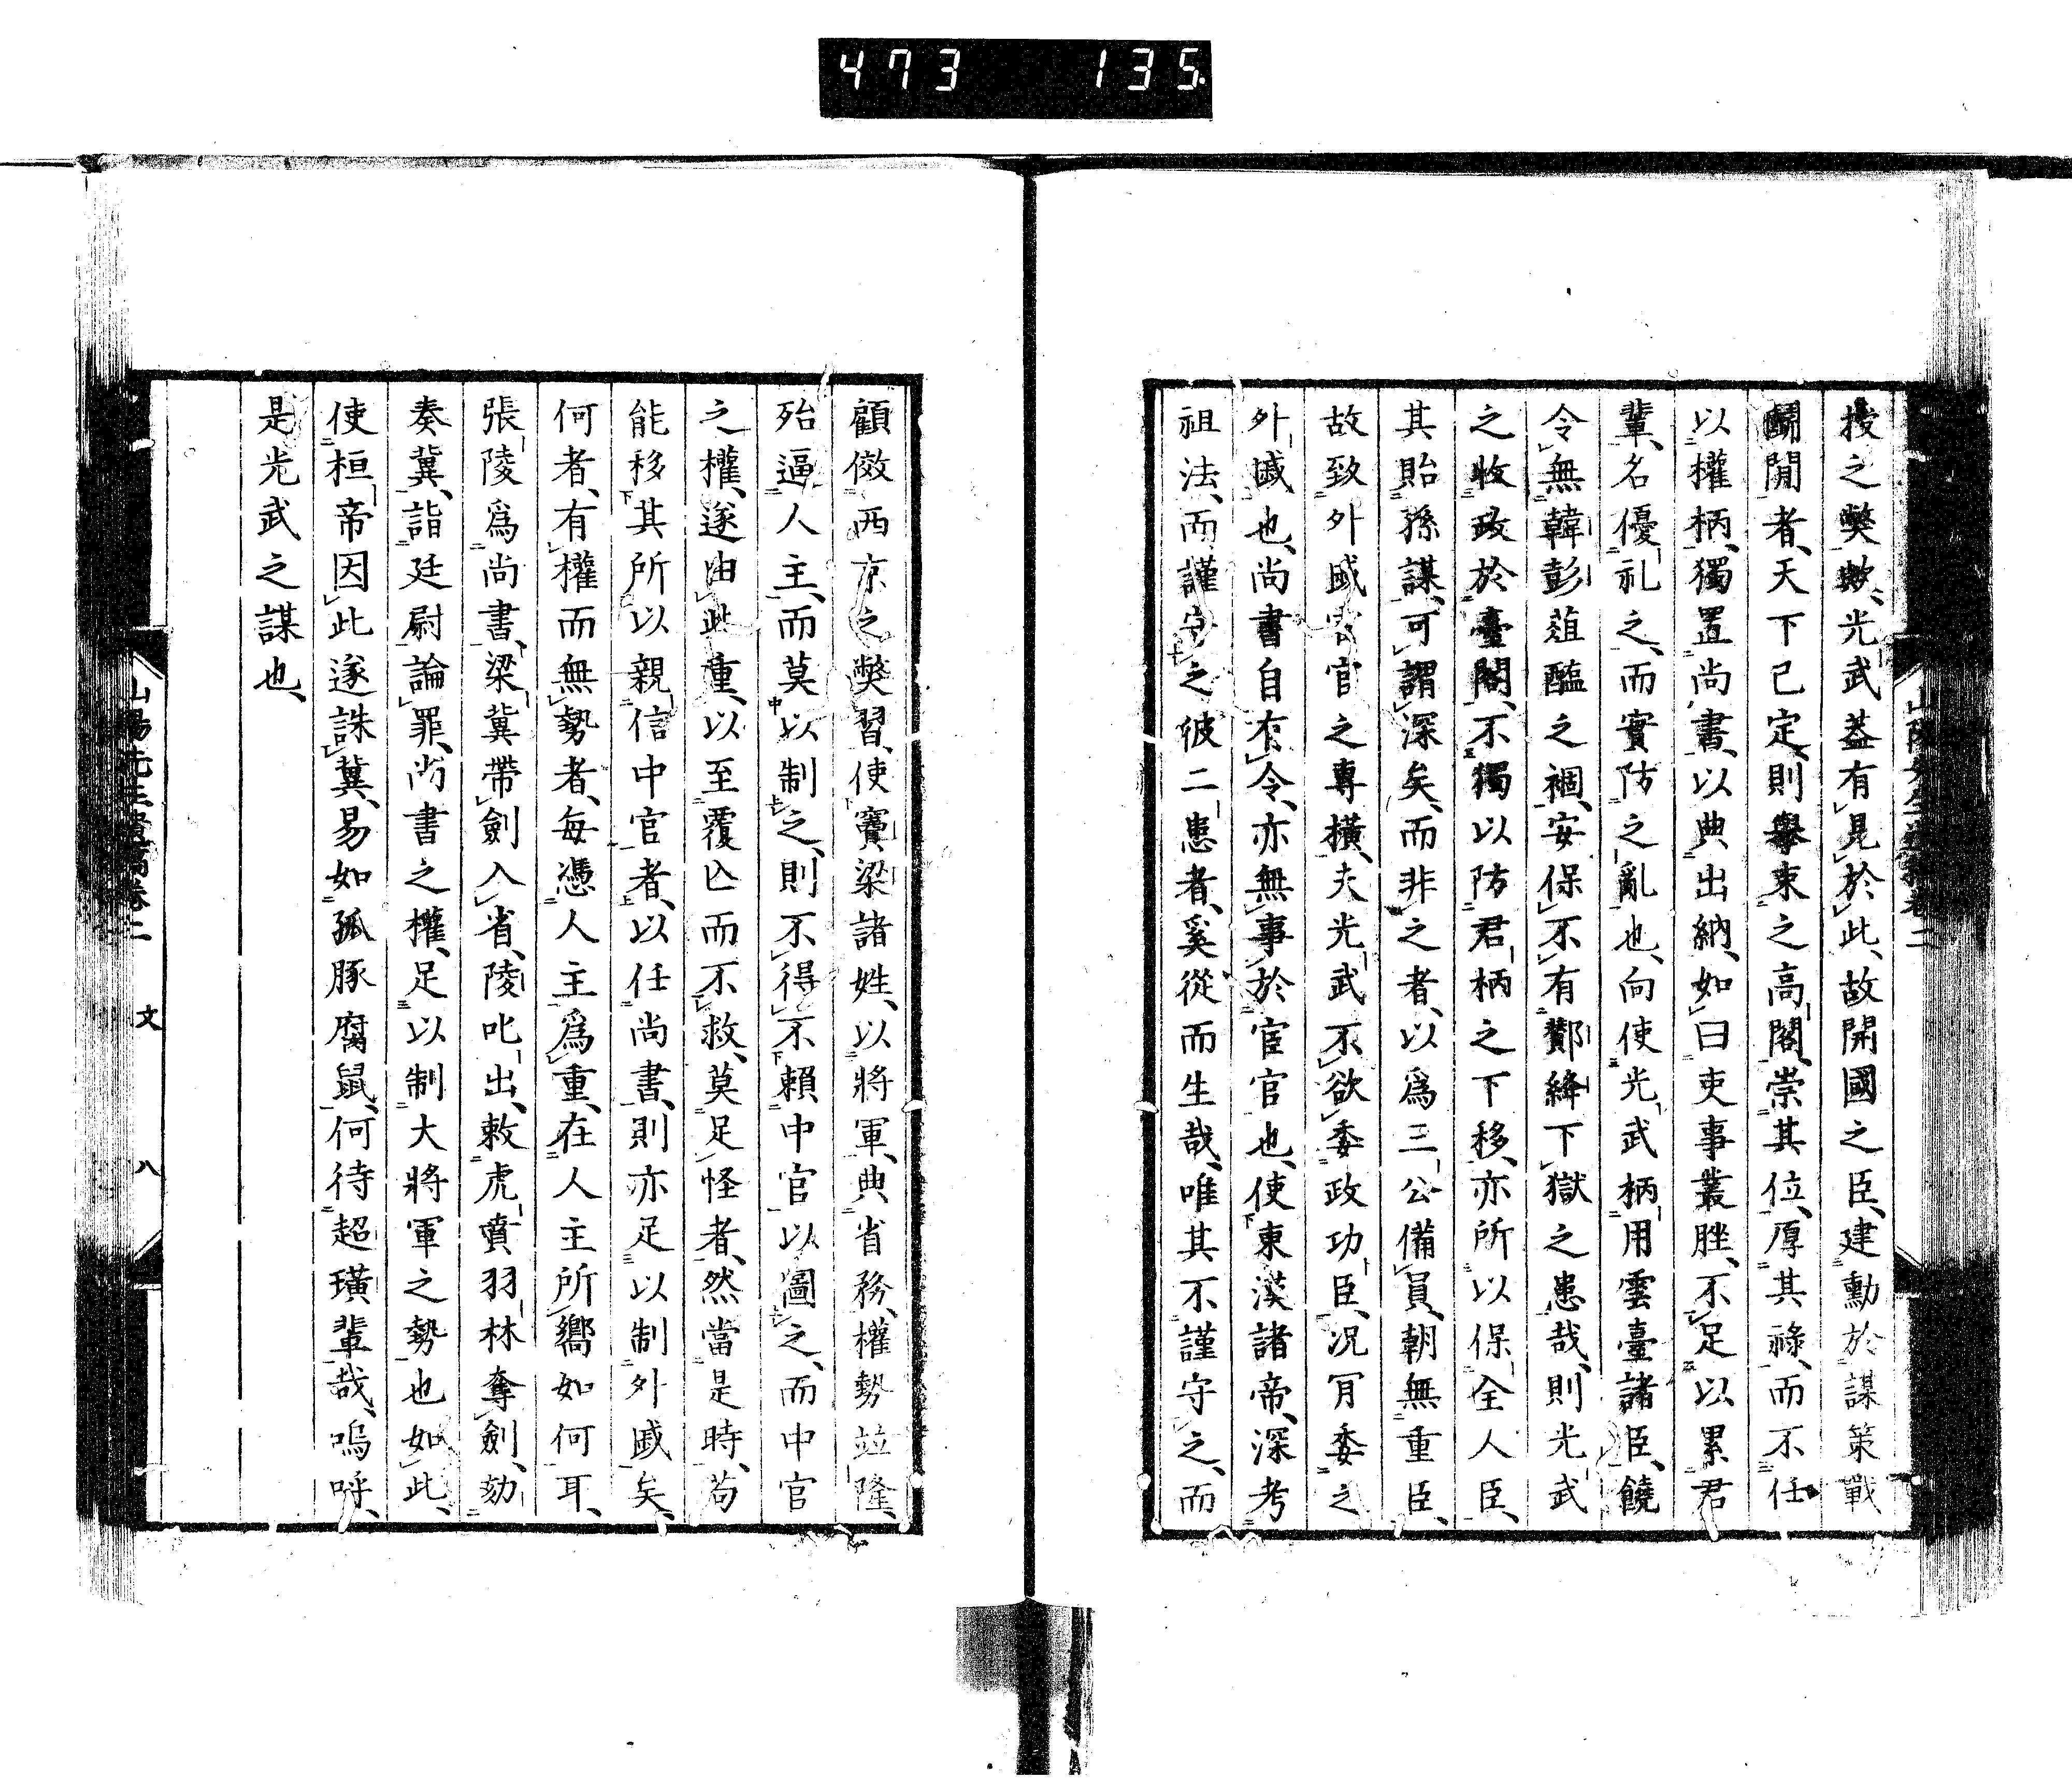 473 135
山陽先生遺稿卷二
授之弊歟、光武葢有見於此、故開國之臣、建勳於謀策戰
鬬閒者、天下已定、則擧束之高閣、崇其位、厚其祿、而不任
以權柄、獨置尚書、以典出納、如曰吏事叢脞、不足以累君
輩、名優礼之、而實防之亂也、向使光武柄用雲臺諸臣、饒
令無韓彭葅醢之禍、安保不有酇絳下獄之患哉、則光武
之收政於臺閣、不獨以防君柄之下移、亦所以保全人臣、
其貽孫謀、可謂深矣、而非之者、以爲三公備員、朝無重臣、
故致外戚宦官之專橫、夫光武不欲委政功臣、况肎委之
外戚也、尚書自有令、亦無事於宦官也、使東漢諸帝、深考
祖法、而謹守之彼二患者、奚從而生哉、唯其不謹守之、而
顧傚西京之弊習、使竇梁諸姓、以將軍、典省務、權勢竝隆、
殆逼人主、而莫以制之、則不得不賴中官以圖之、而中官
之權、遂由此重、以至覆亾而不救、莫足怪者、然當是時、苟
能移其所以親信中官者、以任尚書、則亦足以制外戚矣、
何者、有權而無勢者、每憑人主爲重、在人主所嚮如何耳、
張陵爲尚書、梁冀帶劍入省、陵叱出、敕虎賁羽林奪劍、劾
奏冀、詣廷尉論罪、尚書之權、足以制大將軍之勢也如此、
使桓帝因此遂誅冀、易如孤豚腐鼠、何待超璜輩哉、嗚呼、
是光武之謀也、
山陽先生遺稿卷二 文 八